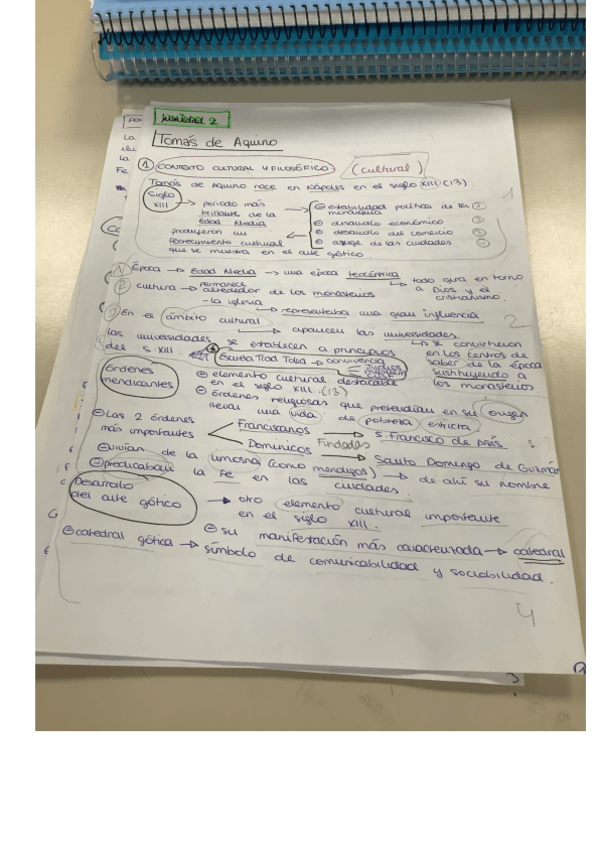 unidad 2
Tomás de Aquino
① CONTEXTO CULTURAL Y FILOSÓFICO (cultural)
Tomás de Aquino nace en Nápoles en el siglo XIII (13).
Siglo XIII → periodo más brillante de la Edad Media
produjeron un florecimiento cultural que se muestra en el arte gótico
estabilidad política de las monarquías ①
desarrollo económico ②
desarrollo del comercio ③
auge de las ciudades ④
① Época → Edad Media → una época teocéntrica
↳ todo gira en torno a Dios y el cristianismo.
② Cultura → permanece alrededor de los monasterios
- la iglesia
↳ representaba una gran influencia
③ En el ámbito cultural
↳ aparecen las universidades
↳ se convirtieron en los centros de saber de la época sustituyendo a los monasterios
las universidades se establecen a principios del s. XIII
Escuela Trad Toledo → convivencia
Órdenes mendicantes
elemento cultural destacable en el siglo XIII. (13)
Órdenes religiosas que pretendían en su origen llevar una vida de pobreza estricta
Las 2 órdenes más importantes
Franciscanos → S. Francisco de Asís
Fundadas
Dominicos → Santo Domingo de Guzmán
vivían de la limosna (como mendigos) → de ahí su nombre
predicaban la Fe en las ciudades.
Desarrollo del arte gótico → otro elemento cultural importante en el siglo XIII.
su manifestación más caracterizada → catedral
catedral gótica → símbolo de comunicabilidad y sociabilidad.
4